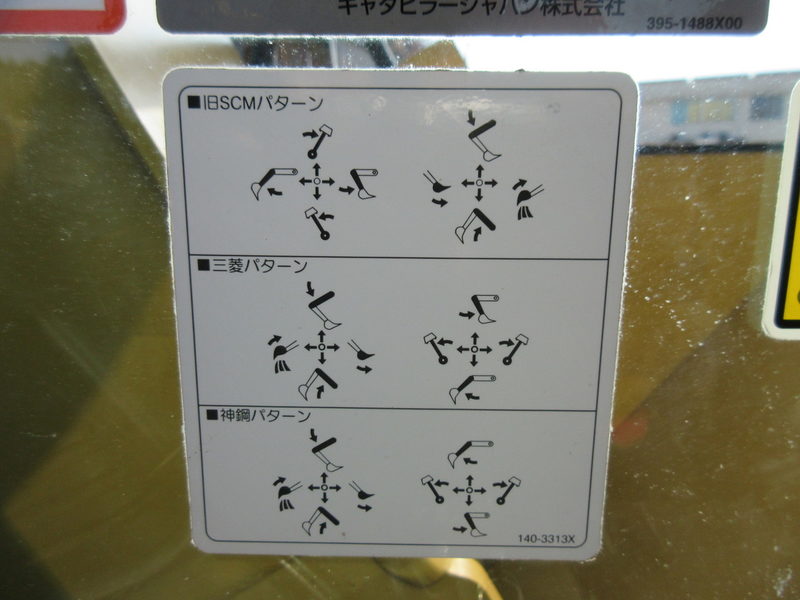 キャタピラージャパン株式会社
395-1488X00
■旧SCMパターン
■三菱パターン
■神鋼パターン
140-3313X